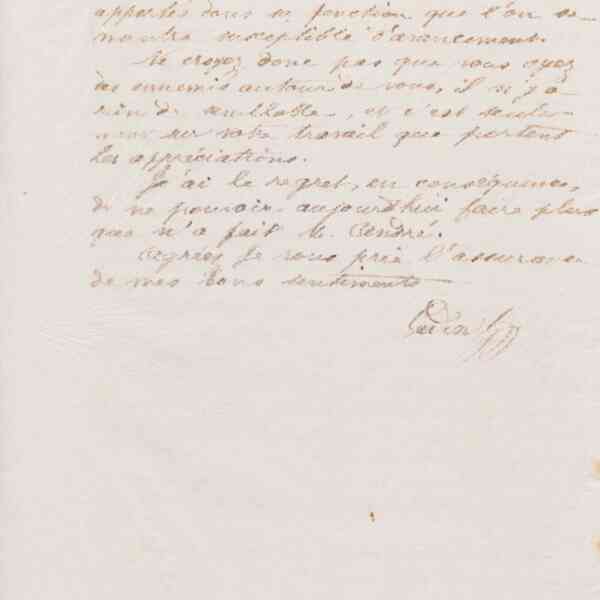 apportés dans sa fonction que l'on se
montre susceptible d'avancement.
Ne croyez donc pas que vous ayez
des ennemis autour de vous, il n'y a
rien de semblable, et c'est seule-
ment sur votre travail que portent
les appréciations.
J'ai le regret, en conséquence,
de ne pouvoir aujourd'hui faire plus
que n'a fait M. Cendré.
Agréez je vous prie l'assurance
de mes bons sentiments